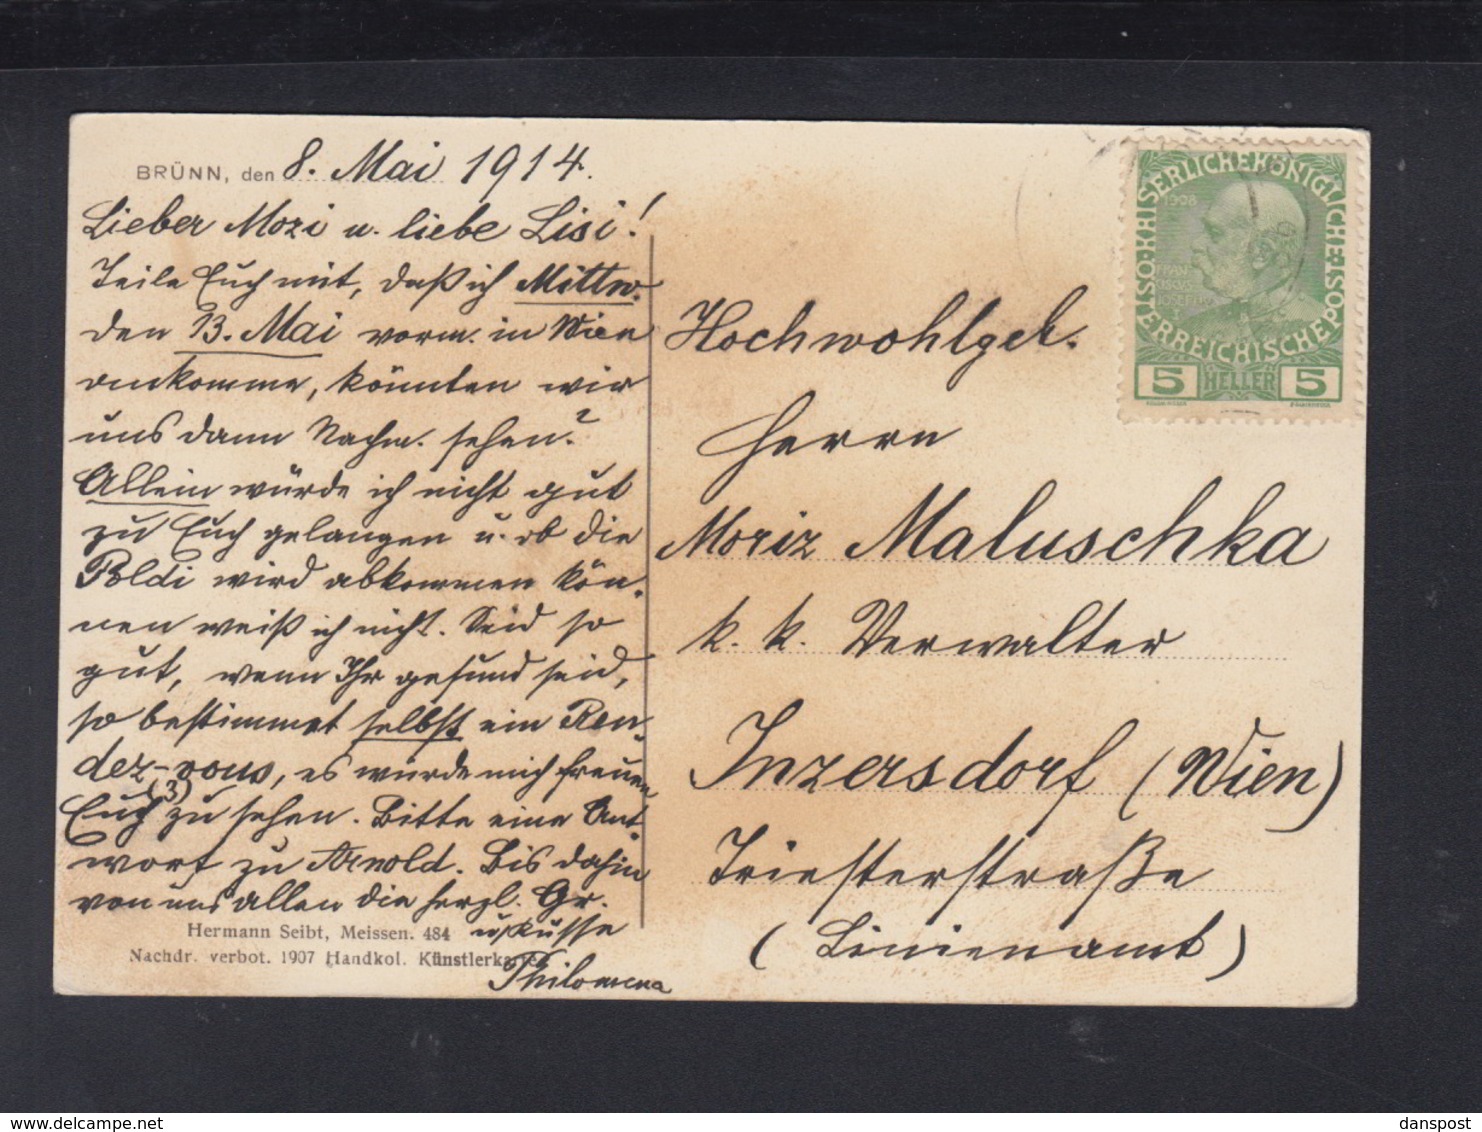 BRÜNN, den 8. Mai 1914.
Lieber Mozi u. liebe Lisi!
Teile Euch mit, daß ich Mittw.
den 13. Mai vorm. in Wien
ankomme, könnten wir
uns dann Nachm. sehen?
Allein würde ich nicht gut
zu Euch gelangen u. ob die
Poldi wird abkommen kön-
nen weiß ich nicht. Seid so
gut, wenn Ihr gesund seid,
so bestimmet selbst ein Ren-
dez-vous, es würde mich freuen
Euch (3) zu sehen. Bitte eine Ant-
wort zu Arnold. Bis dahin
von uns allen die herzl. Gr.
u. Küsse
Philomena
Hermann Seibt, Meissen. 484
Nachdr. verbot. 1907 Handkol. Künstlerkarte
Hochwohlgeb.
Herrn
Moriz Maluschka
k. k. Verwalter
Inzersdorf (Wien)
Triesterstraße
(Linienamt)
KAISERLICHE KÖNIGLICHE ÖSTERREICHISCHE POST
1908
FRAN
ISCVS
IOSEF I
5 HELLER 5
danspost